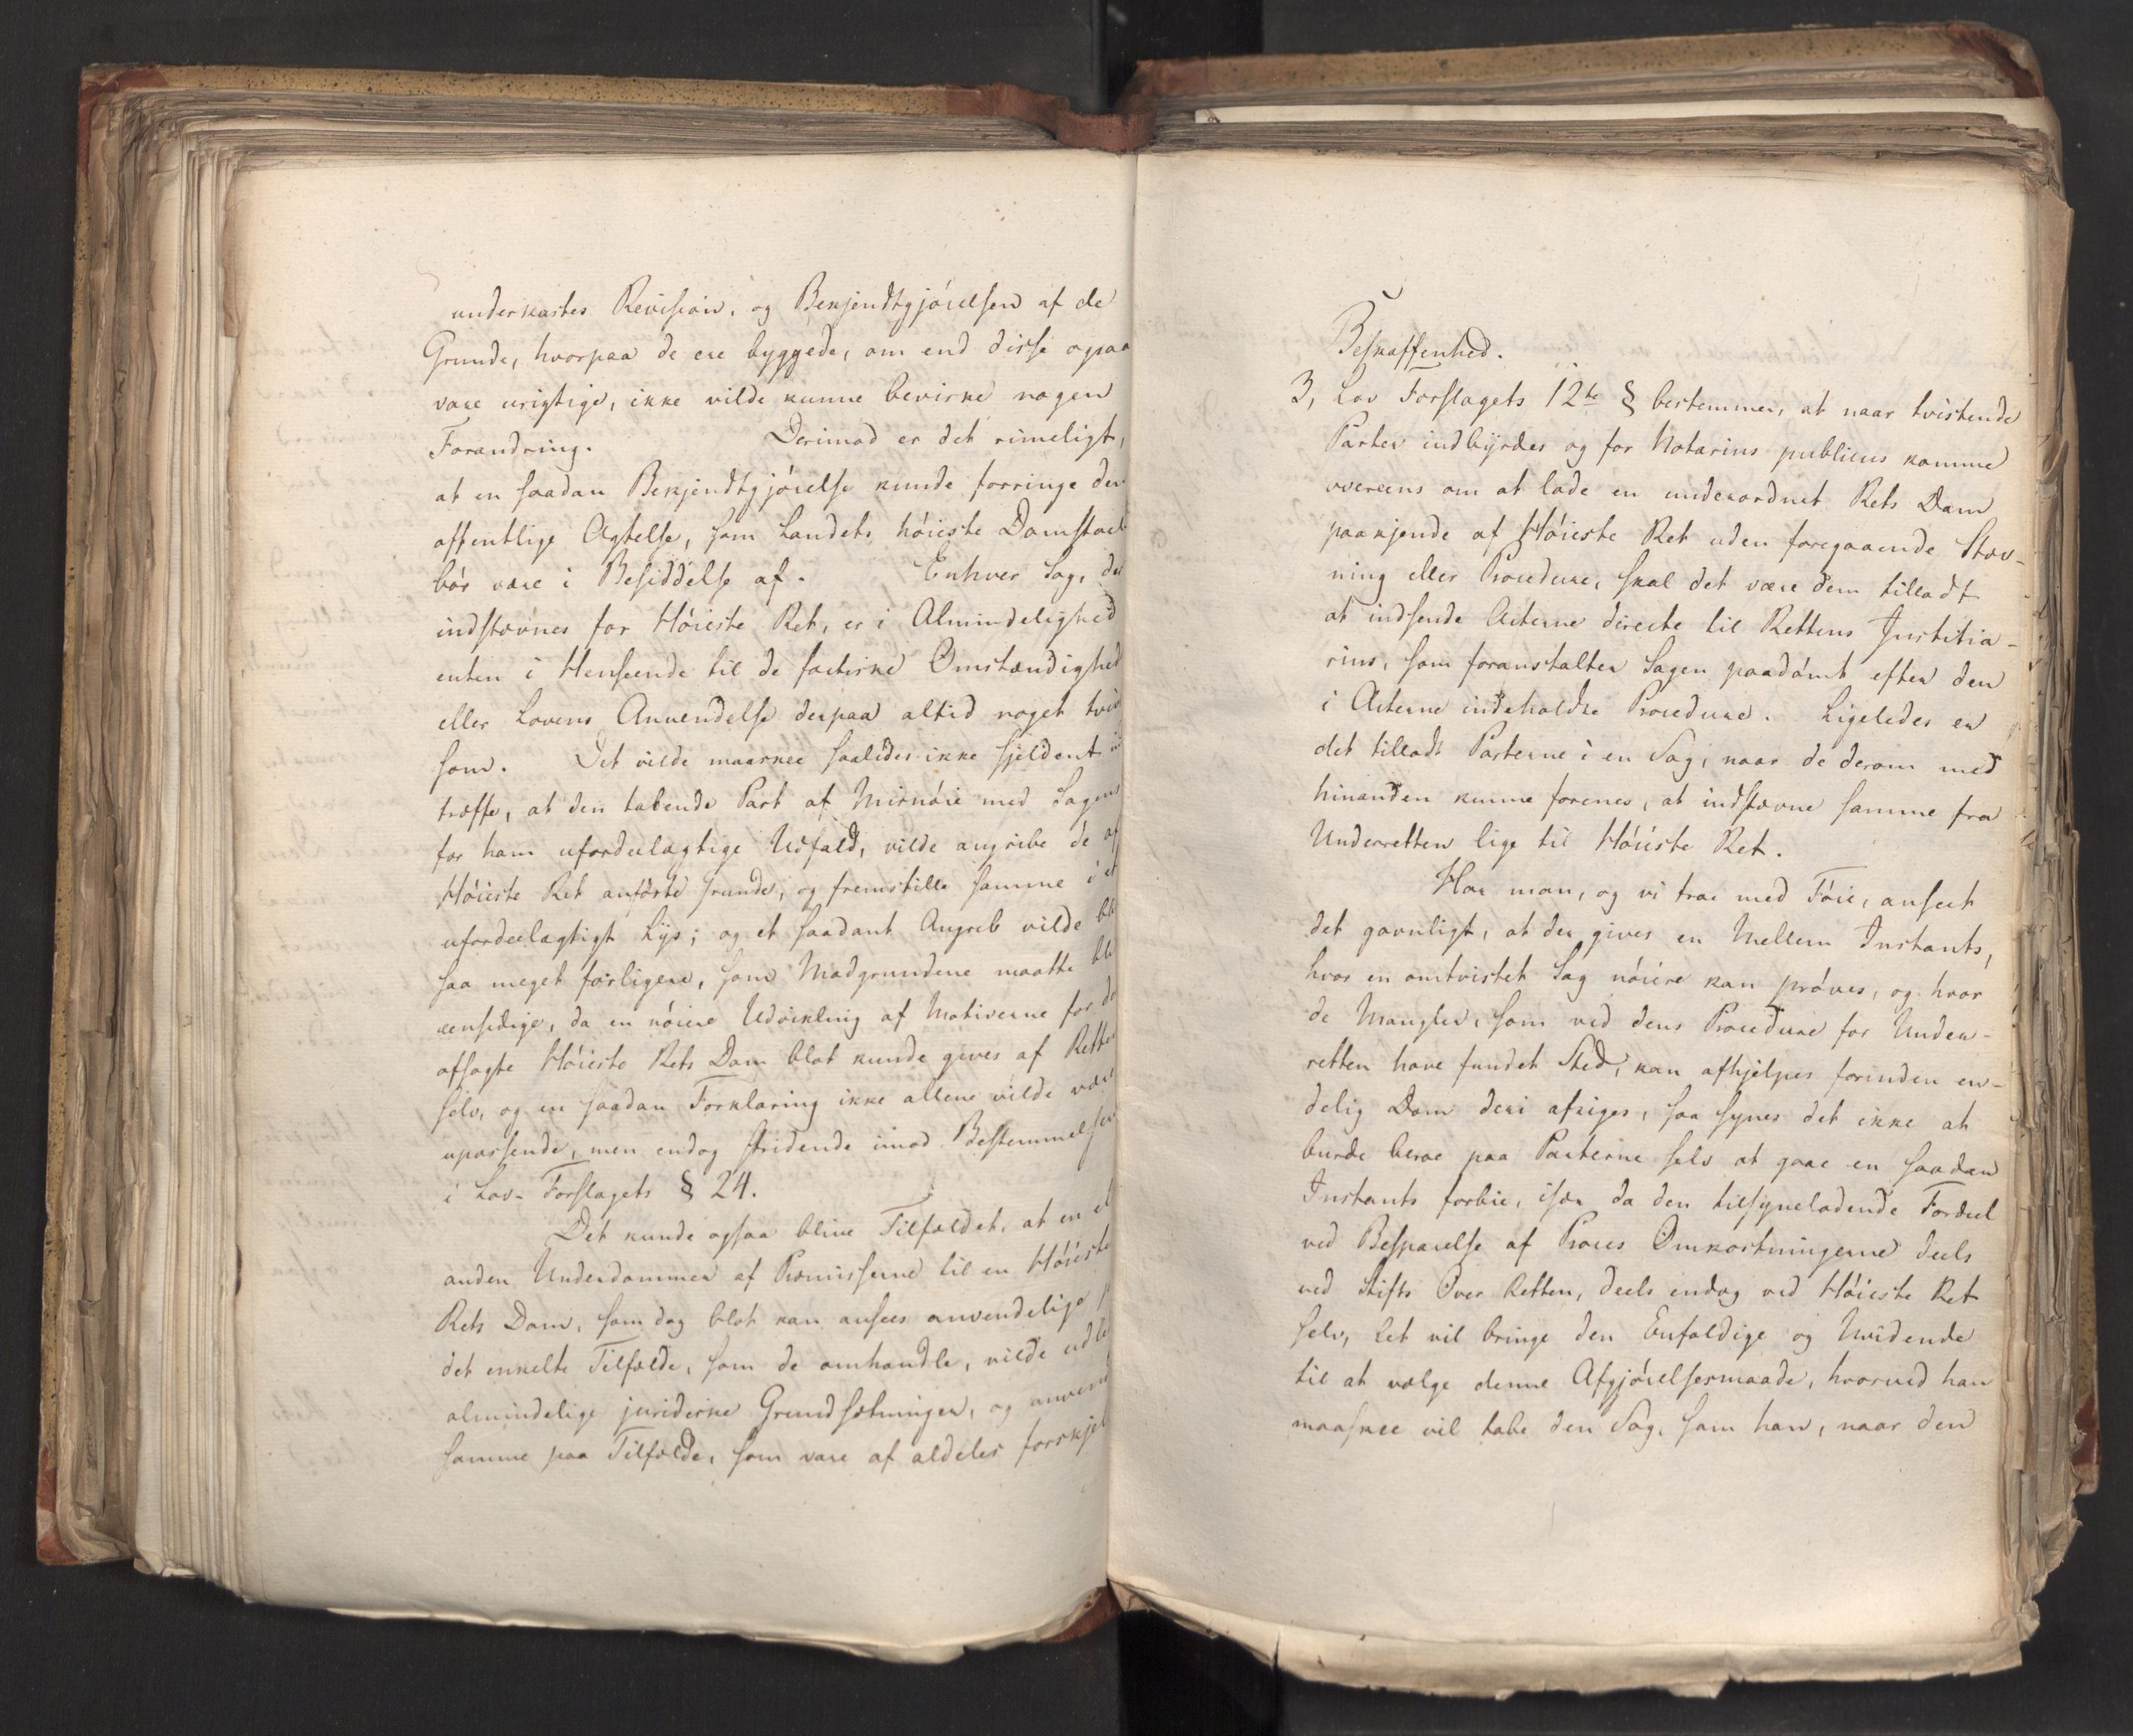 underkastes Revision, og Bekjendtgjörelsen af de
Grunde, hvorpaa de ere byggede, om end disse ogsaa
vare urigtige, ikke vilde kunne bevirke nogen
Forandring. Derimod er det rimeligt,
at en saadan Bekjendtgjörelse kunde forringe den
offentlige Agtelse, som Landets höieste Domstoel
bör være i Besiddelse af. Enhver Sag, der
indstævnes for Höieste Ret, er i Almindelighed
enten i Henseende til de factiske Omstændighed
eller Lovens Anvendelse derpaa altid noget tvivl
som. Det vilde maaskee saaledes ikke sjeldent ind
træffe, at den tabende Part af Misnöie med Sagens
for ham ufordeelagtige Udfald, vilde angribe de af
Höieste Ret anförte Grunde, og fremstille samme i et
ufordeelagtigt Lys; og et saadant Angreb vilde bli
saa meget farligere, som Modgrundene maatte bli
eensidige, da en nöiere Udvikling af Motiverne for de
afsagte Höieste Rets Dom blot kunde gives af Retten
selv, og en saadan Forklaring ikke allene vilde være
upassende, men endog stridende imod Bestemmelsen
i Lov-Forslagets § 24.
Det kunde ogsaa blive Tilfældet, at en el
anden Underdommer af Præmisserne til en Höieste
Rets Dom, som dog blot kan ansees anvendelige p
det enkelte Tilfælde, som de omhandle, vilde udle
almindelige juridiske Grundsætninger, og anvend
samme paa Tilfælde, som vare af aldeles forskjel
Beskaffenhed.
3, Lov Forslagets 12te § bestemmer, at naar tvistende
Parter indbyrdes og for Notarius publicus komme
overeens om at lade en underordnet Rets Dom
paakjende af Höieste Ret uden foregaaende Stæv-
ning eller Procedure, skal det være dem tilladt
at indsende Acterne directe til Rettens Justitia-
rius, som foranstalter Sagen paadömt efter den
i Acterne indeholdte Procedure. Ligeledes er
det tilladt Parterne i en Sag, naar de derom med
hinanden kunne forenes, at indstævne samme fra
Underretten lige til Höieste Ret.
Har man, og vi troe med Föie, anseet
det gavnligt, at der gives en Mellem Instants,
hvor en omtvistet Sag nöiere kan pröves, og hvor
de Mangler, som ved dens Procedure for Under-
retten have fundet Sted, kan afhjelpes forinden en-
delig Dom deri afsiges, saa synes det ikke at
burde beroe paa Parterne selv at gaae en saadan
Instants forbie, især da den tilsyneladende Fordeel
ved Besparelse af Proces Omkostningerne deels
ved Stifts Over Retten, deels endog ved Höieste Ret
selv, let vil bringe den Enfoldige og Uvidende
til at vælge denne Afgjörelsesmaade, hvorved han
maaskee vil tabe den Sag, som han, naar den